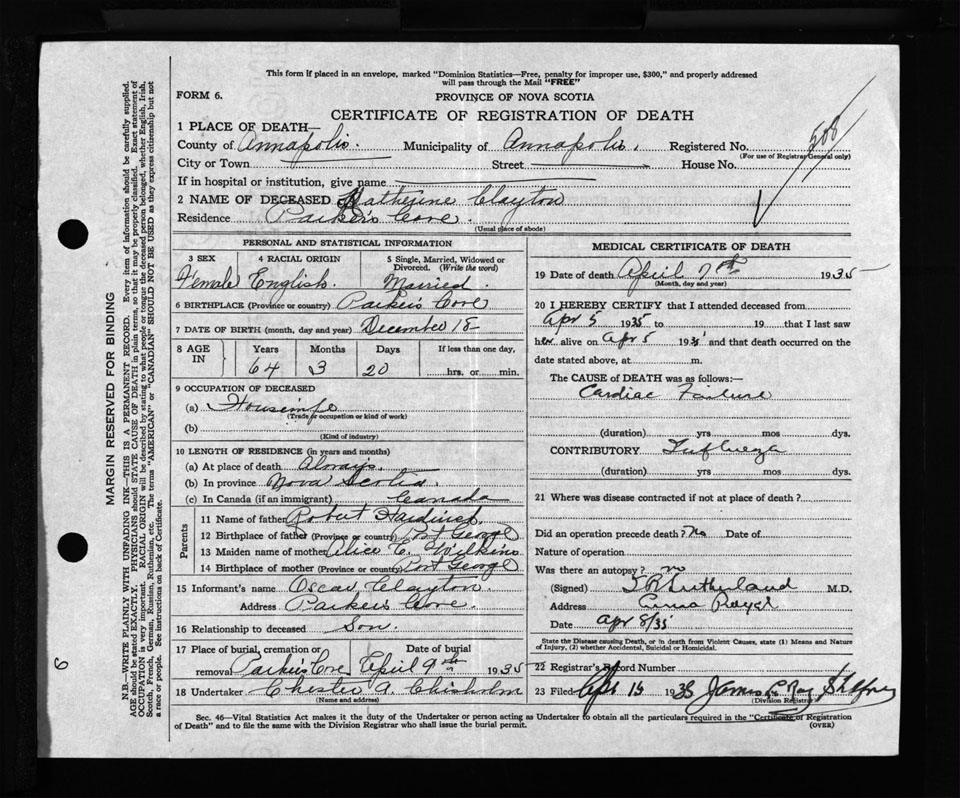 This form if placed in an envelope, marked "Dominion Statistics—Free, penalty for improper use, $300," and properly addressed
will pass through the Mail "FREE"
FORM 6.
PROVINCE OF NOVA SCOTIA
CERTIFICATE OF REGISTRATION OF DEATH
1 PLACE OF DEATH—
508
County of Annapolis. Municipality of Annapolis. Registered No.
(For use of Registrar General only)
City or Town Street House No.
If in hospital or institution, give name
2 NAME OF DECEASED Katherine Clayton
Residence Parker's Cove.
(Usual place of abode)
PERSONAL AND STATISTICAL INFORMATION
3 SEX 4 RACIAL ORIGIN 5 Single, Married, Widowed or
Divorced. (Write the word)
Female English. Married.
6 BIRTHPLACE (Province or country) Parker's Cove
7 DATE OF BIRTH (month, day and year) December 18
8 AGE IN Years Months Days If less than one day,
64 3 20 hrs. or min.
9 OCCUPATION OF DECEASED
(a) Housewife
(Trade or occupation or kind of work)
(b)
(Kind of industry)
10 LENGTH OF RESIDENCE (in years and months)
(a) At place of death Always.
(b) In province Nova Scotia.
(c) In Canada (if an immigrant) Canada
Parents
11 Name of father Robert
12 Birthplace of father (Province or country) Port George
13 Maiden name of mother Alice C. Wilkins
14 Birthplace of mother (Province or country) Port George
15 Informant's name Oscar Clayton.
Address Parker's Cove.
16 Relationship to deceased Son.
17 Place of burial, cremation or Date of burial
removal Parker's Cove April 9th 1935
18 Undertaker Chester A. Chisholm
(Name and address)
MEDICAL CERTIFICATE OF DEATH
19 Date of death April 7th 1935
(Month, day and year)
20 I HEREBY CERTIFY that I attended deceased from
Apr 5 1935 to 19 that I last saw
her alive on Apr 5 1935 and that death occurred on the
date stated above, at m.
The CAUSE of DEATH was as follows:—
Cardiac Failure
(duration) yrs mos dys.
CONTRIBUTORY Influenza
(duration) yrs mos dys.
21 Where was disease contracted if not at place of death?
Did an operation precede death? No Date of
Nature of operation
Was there an autopsy? no
(Signed) Sutherland M.D.
Address Anna Royal
Date Apr 8/35
State the Disease causing Death, or in death from Violent Causes, state (1) Means and Nature
of Injury, (2) whether Accidental, Suicidal or Homicidal.
22 Registrar's Record Number
23 Filed Apr 15 1935 James
(Division Registrar)
Sec. 46—Vital Statistics Act makes it the duty of the Undertaker or person acting as Undertaker to obtain all the particulars required in the "Certificate of Registration
of Death" and to file the same with the Division Registrar who shall issue the burial permit.
(OVER)
MARGIN RESERVED FOR BINDING
N.B.—WRITE PLAINLY WITH UNFADING INK—THIS IS A PERMANENT RECORD. Every item of information should be carefully supplied.
AGE should be stated EXACTLY. PHYSICIANS should STATE CAUSE OF DEATH in plain terms, so that it may be properly classified. Exact statement of
OCCUPATION is very important. RACIAL ORIGIN will be described by stating to what people or tongue the deceased person belonged, whether English, Irish,
Scotch, French, German, Russian, Ruthenian, etc. The terms "AMERICAN" or "CANADIAN" SHOULD NOT BE USED as they express citizenship but not
a race or people. See instructions on back of Certificate.